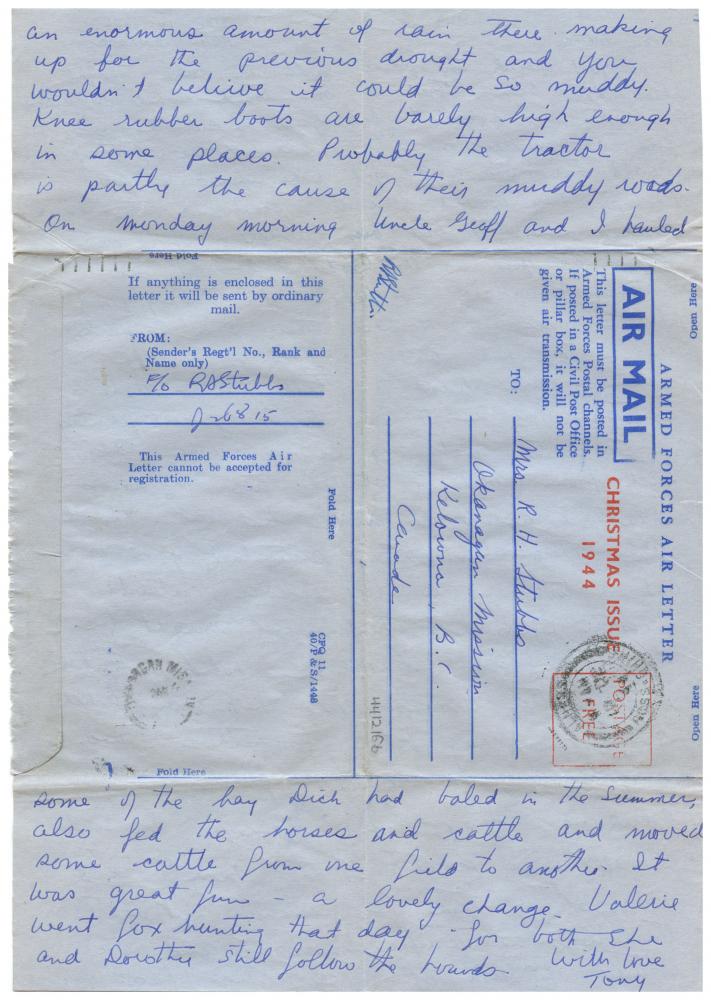 an enormous amount of rain there making
up for the previous drought and you
wouldn't believe it could be so muddy.
Knee rubber boots are barely high enough
in some places. Probably the tractor
is partly the cause of their muddy roads.
On Monday morning Uncle Geoff and I hauled
Fold Here
If anything is enclosed in this
letter it will be sent by ordinary
mail.
FROM:
(Sender's Regt'l No., Rank and
Name only)
F/O RAStubbs
J26815
This Armed Forces Air
Letter cannot be accepted for
registration.
Fold Here
CPQ 11
40/P & S/1448
Fold Here
Open Here
ARMED FORCES AIR LETTER
Open Here
AIR MAIL
CHRISTMAS ISSUE
1944
POSTAGE
FREE
This letter must be posted in
Armed Forces Postal channels.
If posted in a Civil Post Office
or pillar box, it will not be
given air transmission.
TO:
Mrs R. H. Stubbs
Okanagan Mission
Kelowna, B.C.
Canada
some of the hay Dick had baled in the summer,
also fed the horses and cattle and moved
some cattle from one field to another. It
was great fun - a lovely change. Valerie
went fox hunting that day - for both she
and Dorothy still follow the hounds.
With love
Tony